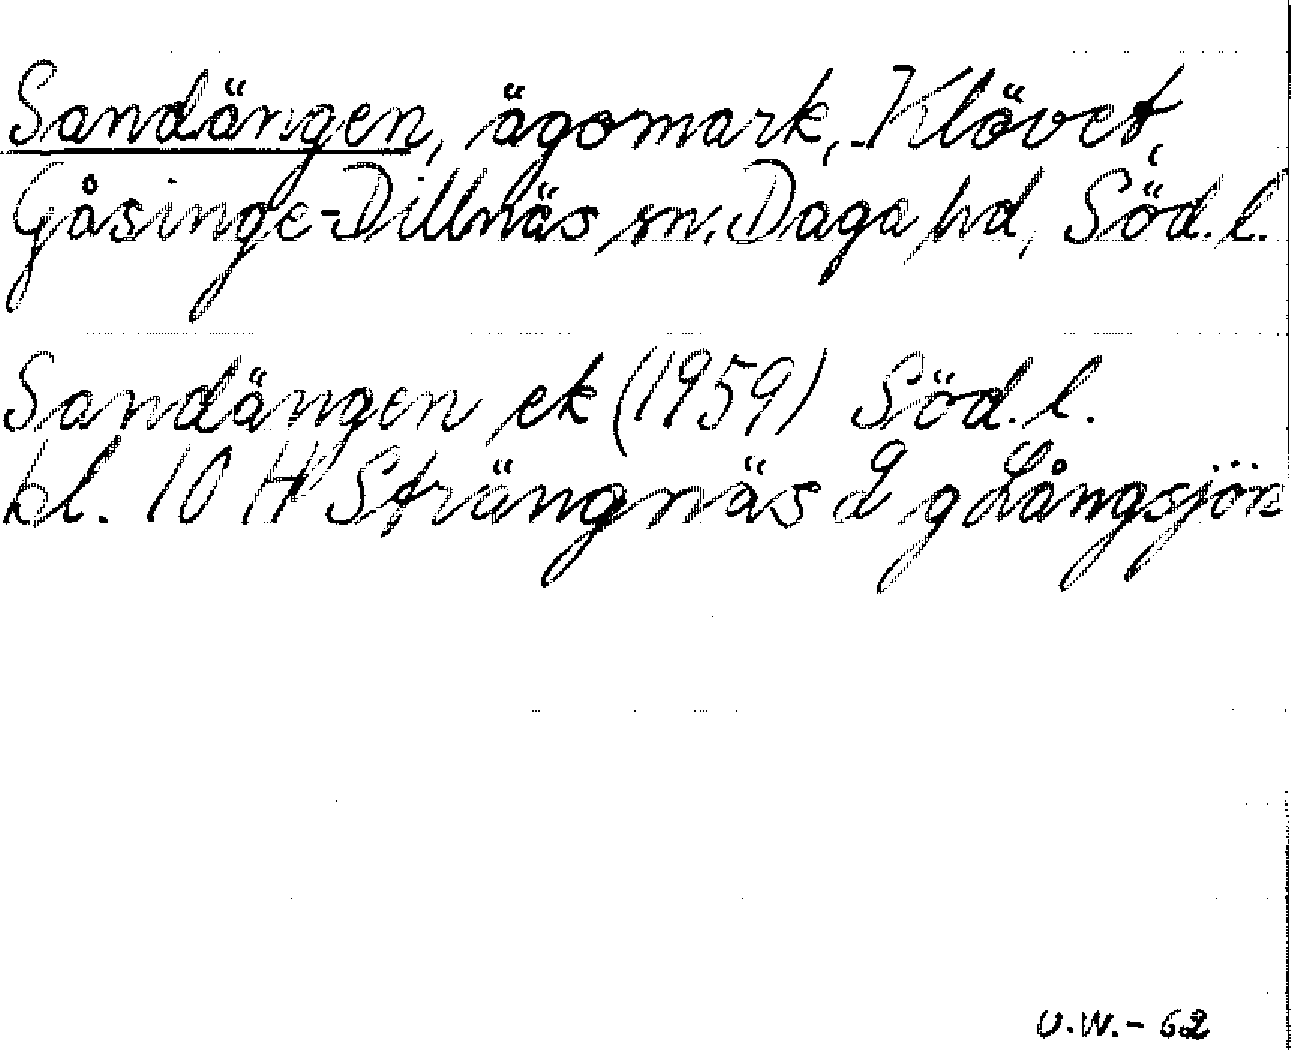 Sandängen, ägomark, Klövet,
Gåsinge-Dillnäs sn, Daga hd, Söd. l.
Sandängen ek (1959) Söd. l.
bl. 10 H Strängnäs 2 g Långsjön
U.W.- 62